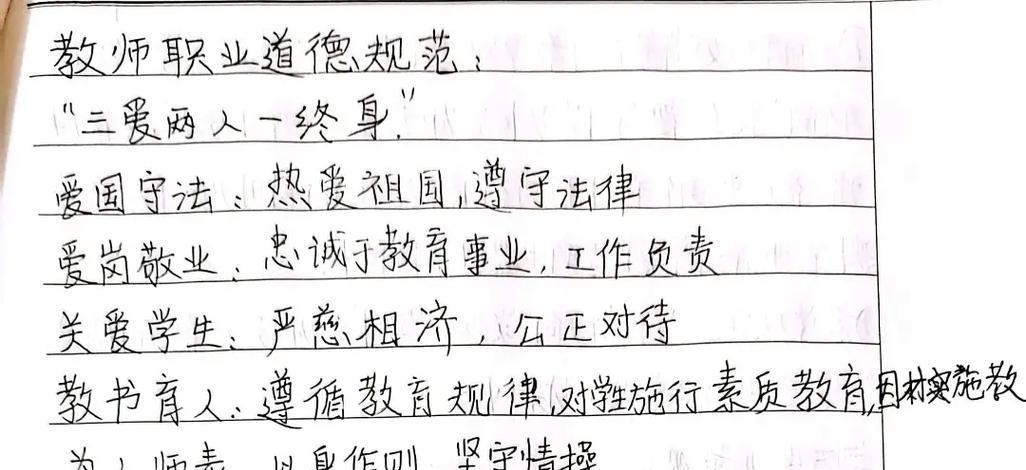 教师职业道德规范:
“三爱两人一终身”
爱国守法:热爱祖国,遵守法律
爱岗敬业:忠诚于教育事业,工作负责
关爱学生:严慈相济,公正对待
教书育人:遵循教育规律,对学生施行素质教育,因材施教
为人师表 以身作则 坚守情操